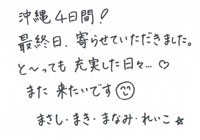 沖縄4日間!
最終日、寄らせていただきました。
と〜っても 充実した日々…♡
また 来たいです☺
まさし・まき・まなみ・れいこ★